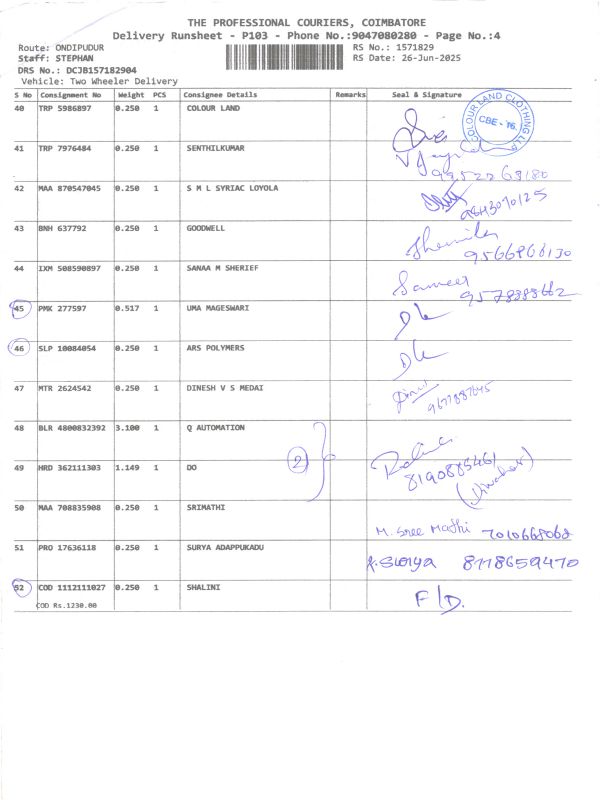 THE PROFESSIONAL COURIERS, COIMBATORE
Delivery Runsheet - P103 - Phone No.:9047080280 - Page No.:4
Route: ONDIPUDUR RS No.: 1571829
Staff: STEPHAN RS Date: 26-Jun-2025
DRS No.: DCJB157182904
Vehicle: Two Wheeler Delivery
S No Consignment No Weight PCS Consignee Details Remarks Seal & Signature
40 TRP 5986897 0.250 1 COLOUR LAND
COLOUR LAND CLOTHING LLP
CBE - 16.
41 TRP 7976484 0.250 1 SENTHILKUMAR
9952263180
42 MAA 870547045 0.250 1 S M L SYRIAC LOYOLA
43 BNH 637792 0.250 1 GOODWELL
9566866130
44 IXM 508590897 0.250 1 SANAA M SHERIEF
Sameer
45 PMK 277597 0.517 1 UMA MAGESWARI
46 SLP 10084054 0.250 1 ARS POLYMERS
47 MTR 2624542 0.250 1 DINESH V S MEDAI
48 BLR 4800832392 3.100 1 Q AUTOMATION
2
49 HRD 362111303 1.149 1 DO
8190885461
50 MAA 708835908 0.250 1 SRIMATHI
M. Sree Mathi 7010668068
51 PRO 17636118 0.250 1 SURYA ADAPPUKADU
R. Surya 8778659470
52 COD 1112111027 0.250 1 SHALINI F/D.
COD Rs.1230.00